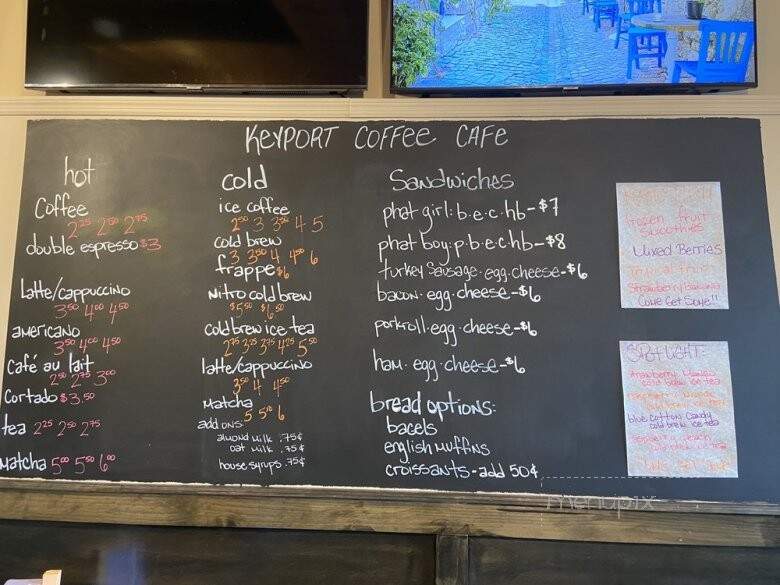 KEYPORT COFFEE CAFE
hot
Coffee
2²⁵ 2⁵⁰ 2⁷⁵
double espresso $3
Latte/cappuccino
3⁵⁰ 4⁰⁰ 4⁵⁰
americano
3⁵⁰ 4⁰⁰ 4⁵⁰
Café au lait
2⁵⁰ 2⁷⁵ 3⁰⁰
Cortado $3.50
tea 2²⁵ 2⁵⁰ 2⁷⁵
Matcha 5⁰⁰ 5⁵⁰ 6⁰⁰
cold
ice coffee
2⁵⁰ 3 3⁵⁰ 4 5
cold brew
3 3⁵⁰ 4 4⁵⁰ 6
frappe $6
Nitro cold brew
$5⁵⁰ $6⁵⁰
Cold brew ice tea
2⁷⁵ 3²⁵ 3⁷⁵ 4²⁵ 5⁵⁰
latte/cappuccino
3⁵⁰ 4 4⁵⁰
Matcha
5 5⁵⁰ 6
add ons
almond milk .75¢
oat milk .75¢
house syrups .75¢
Sandwiches
phat girl: b.e.c.hb-$7
phat boy: p.b.e.c.hb-$8
turkey sausage.egg.cheese-$6
bacon.egg.cheese-$6
porkroll.egg.cheese-$6
ham.egg.cheese-$6
bread options:
bagels
english muffins
croissants-add 50¢
frozen fruit
smoothies
Mixed Berries
Strawberry banana
Come Get Some!!
SPOTLIGHT:
cold brew ice tea
blue cotton candy
cold brew ice tea
menupix